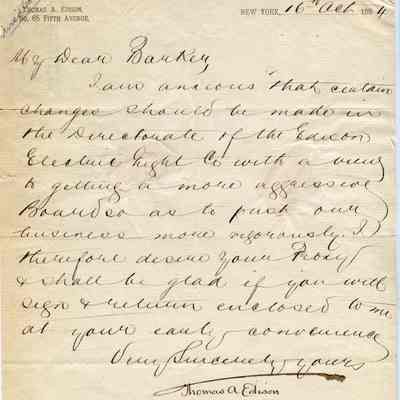 THOMAS A. EDISON,
No. 65 FIFTH AVENUE,
NEW YORK, 16th Oct 1884
My Dear Barker,
I am anxious that certain
changes should be made in
the Directorate of the Edison
Electric Light Co with a view
to getting a more aggressive
Board so as to push our
business more vigorously. I
therefore desire your Proxy
& shall be glad if you will
sign & return enclosed to me
at your early convenience
Very Sincerely yours
Thomas A Edison